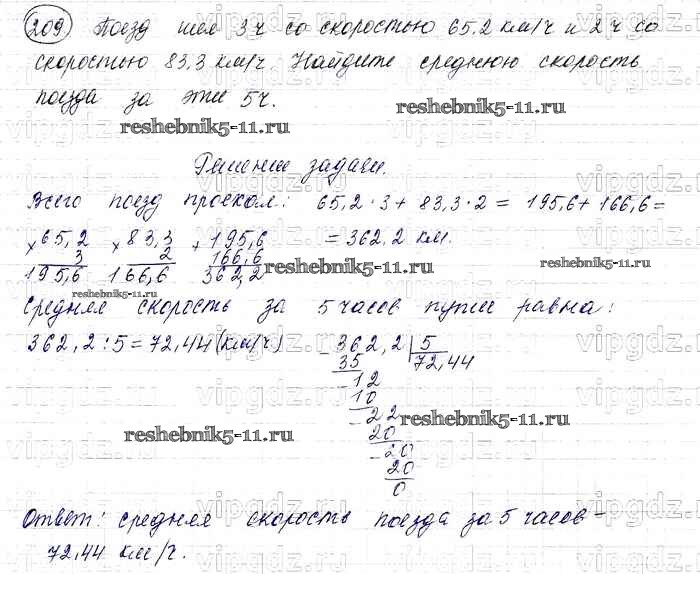 209 Поезд шел 3 ч со скоростью 65.2 км/ч и 2 ч со
скоростью 83,3 км/ч. Найдите среднюю скорость
поезда за эти 5ч.
reshebnik5-11.ru
reshebnik5-11.ru
Решение задачи.
Всего поезд проехал: 65,2 · 3 + 83,3 · 2 = 195,6 + 166,6 =
× 65,2 × 83,3 + 195,6 = 362,2 км.
3 2 166,6
195,6 166,6 362,2
reshebnik5-11.ru
reshebnik5-11.ru
reshebnik5-11.ru
Средняя скорость за 5 часов пути равна:
362,2 : 5 = 72,44 (км/ч) - 362,2 5
35 72,44
- 12
10
- 22
20
- 20
20
0
reshebnik5-11.ru
reshebnik5-11.ru
Ответ: средняя скорость поезда за 5 часов -
72,44 км/ч.
vipgdz.ru